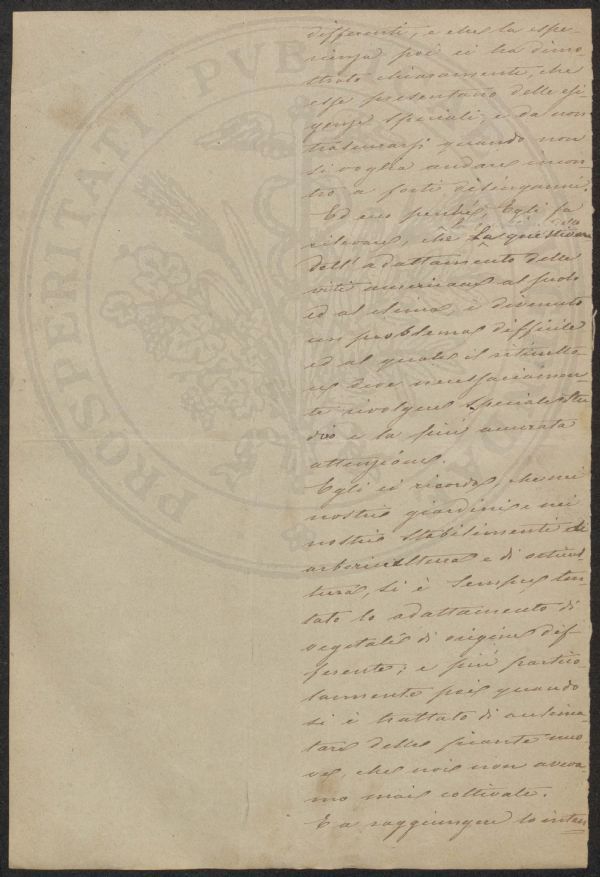 differenti, e che la espe-
rienza poi ci ha dimo-
strato chiaramente, che
esse presentano delle esi-
genze speciali, e da non
trascurarsi quando non
si voglia andare incon-
tro a forti disinganni.
Ed ecco perché, Egli fa
rilevare, che la questione
dell'adattamento delle
viti americane al suolo
ed al clima è divenuto
un problema difficile
ed al quale il viticulto-
re deve necessariamen-
te rivolgere speciale stu
dio e la più accurata
attenzione.
Egli ci ricorda, che nei
nostri giardini e nei
nostri stabilimenti di
arboricultura e di orticul-
tura, si è sempre ten-
tato lo adattamento di
vegetali di origine dif-
ferente; e più partico
larmente poi quando
si è trattato di acclima-
tare delle piante nuo
ve, che noi non aveva-
mo mai coltivate.
E a raggiungere lo inten
PROSPERITATI PVBL